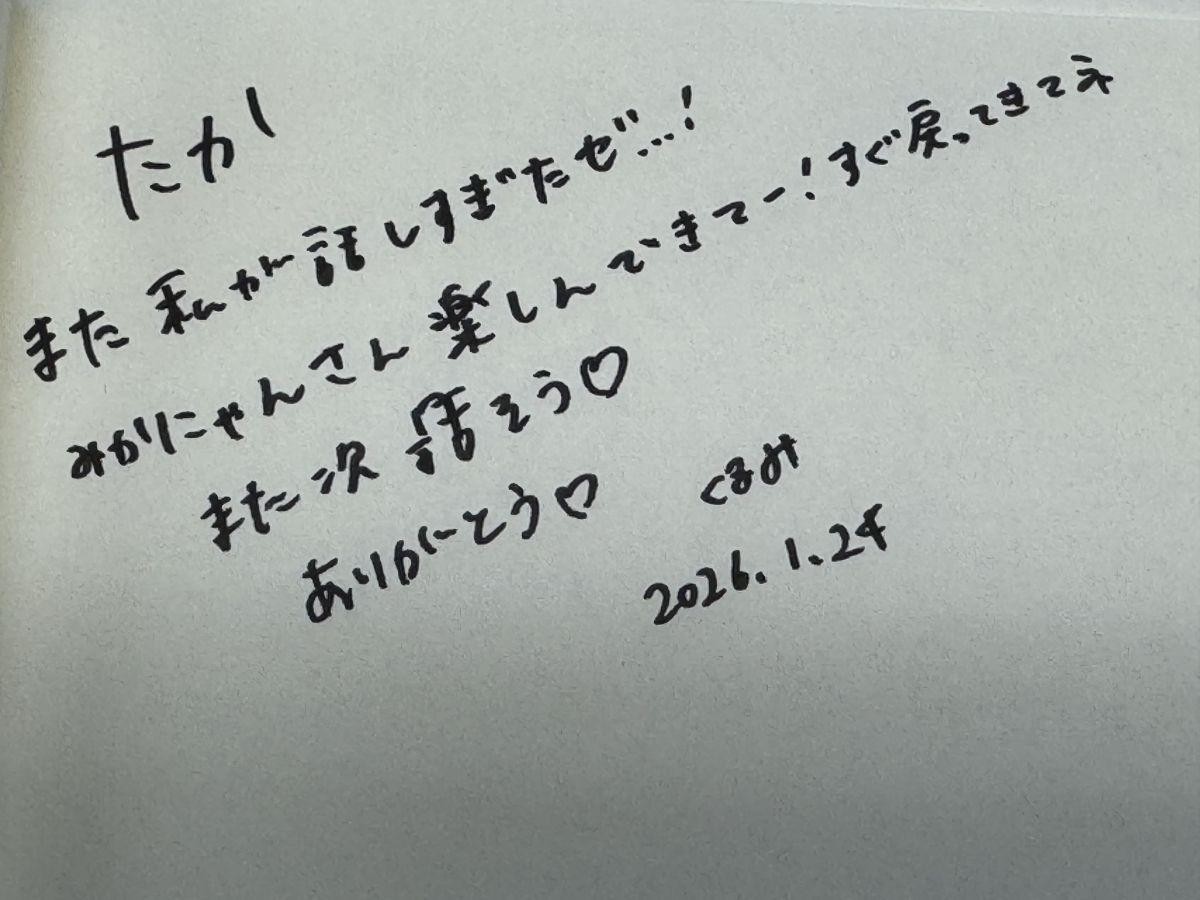 たか
また私が話しすぎたぜ...!
みかりにゃんさん楽しんできてー!すぐ戻ってきてネ
また次話そう♡
ありがとう♡
くるみ
2026.1.24